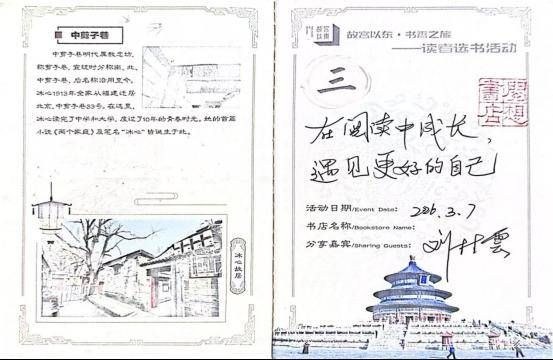 中剪子巷
中剪子巷明代属教忠坊,
称剪子巷,宣统时分称南、北、
中剪子巷,后名称沿用至今。
冰心1913年全家从福建迁居
北京,中剪子巷33号。在这里,
冰心读完了中学和大学,度过了10年的青春时光。她的首篇
小说《两个家庭》及笔名“冰心”皆诞生于此。
冰心故居
故宫以东
故宫以东·书香之旅
——读者选书活动
三
阅想書店
在阅读中成长,
遇见更好的自己
活动日期/Event Date:
书店名称/Bookstore Name:
分享嘉宾/Sharing Guests: